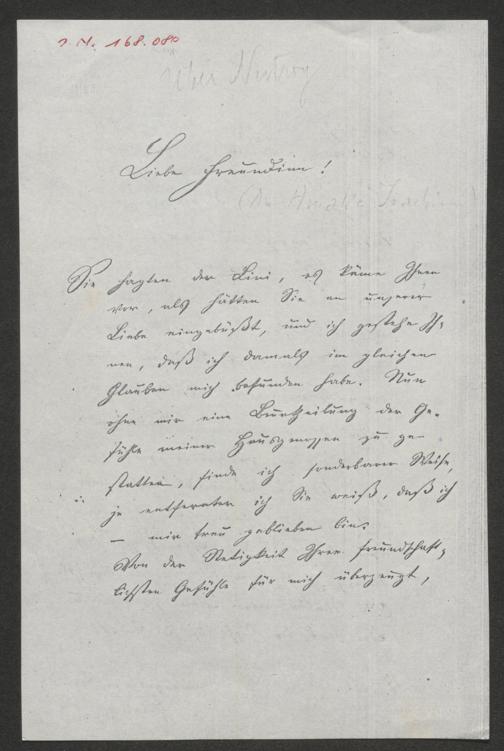 J. N. 168.080
Über Nestroy
Liebe Freundinn!
(An Amalie Joachim)
Sie sagten der Lini, es käme Ihnen
vor, als hätten Sie an unserer
Liebe eingebüßt, und ich gestehe Ih-
nen, daß ich damals im gleichen
Glauben mich befunden habe. Nun
ohne mir eine Beurtheilung der Ge-
fühle meiner Hausgenossen zu ge-
statten, finde ich sonderbarer Weise,
je entfernter ich Sie weiß, daß ich
– mir treu geblieben bin.
Von der Stetigkeit Ihrer freundschaft-
lichsten Gefühle für mich überzeugt,